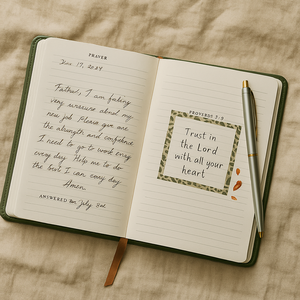 PRAYER
Dec. 17, 2024
Father, I am feeling
very anxious about my
new job. Please give me
the strength and confidence
I need to go to work every
every day. Help me to do
the best I can every day.
Amen.
ANSWERED July
PROVERBS 3:5
Trust in
the Lord
with all your
heart